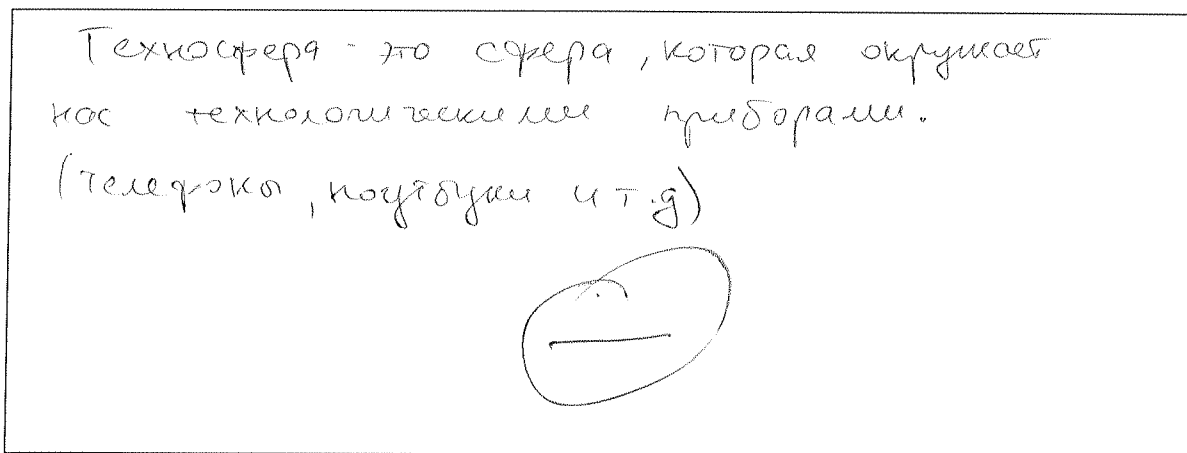 Техносфера - это сфера, которая окружает
нас технологическими приборами.
(телефоны, ноутбуки и т.д)